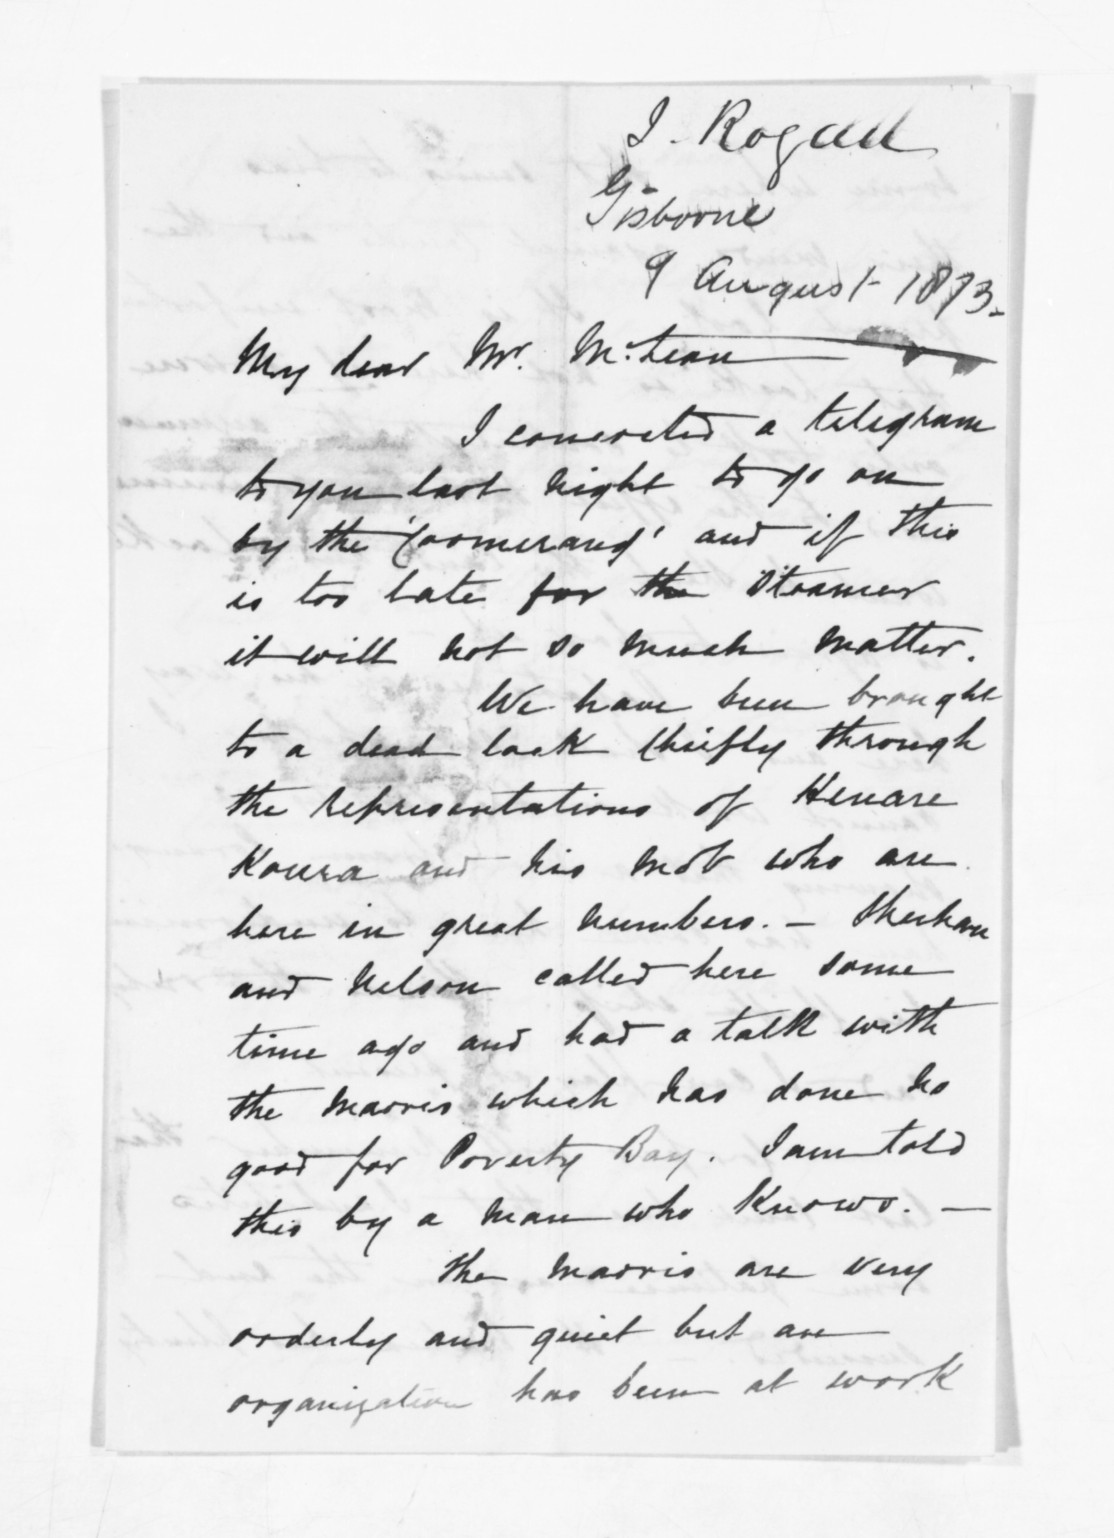 J. Rogan
Gisborne
9 August 1873.
My dear Mr. McLean
I concocted a telegram
to you last night to go on
by the 'Boomerang' and if this
is too late for the Steamer
it will not so much matter.
We have been brought
to a dead lock chiefly through
the representations of Henare
Koura and his mob who are
here in great numbers. - Sheehan
and Nelson called here some
time ago and had a talk with
the Maoris which has done no
good for Poverty Bay. I am told
this by a man who knows. -
The Maoris are very
orderly and quiet but an
organization has been at work